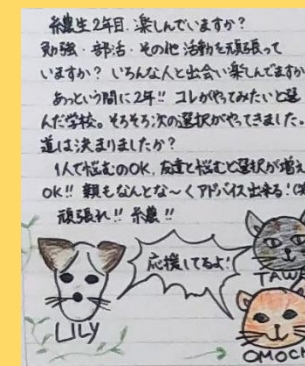 糸農生2年目、楽しんでいますか?
勉強・部活・その他活動を頑張って
いますか? いろんな人と出会い楽しんてますか
あっという間に2年!! コレがやってみたいと選
んだ学校。そろそろ次の選択がやってきました。
道は決まりましたか?
1人で悩むのOK, 友達と悩むと選択が増え
OK!! 親もなんとな~くアドバイス出来る!(笑
頑張れ!! 糸農!!
応援してるよ!
LILY
TAWA
OMOCH